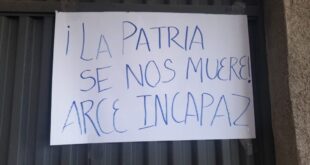 ¡LA PATRIA
SE NOS MUERE!
ARCE INCAPAZ